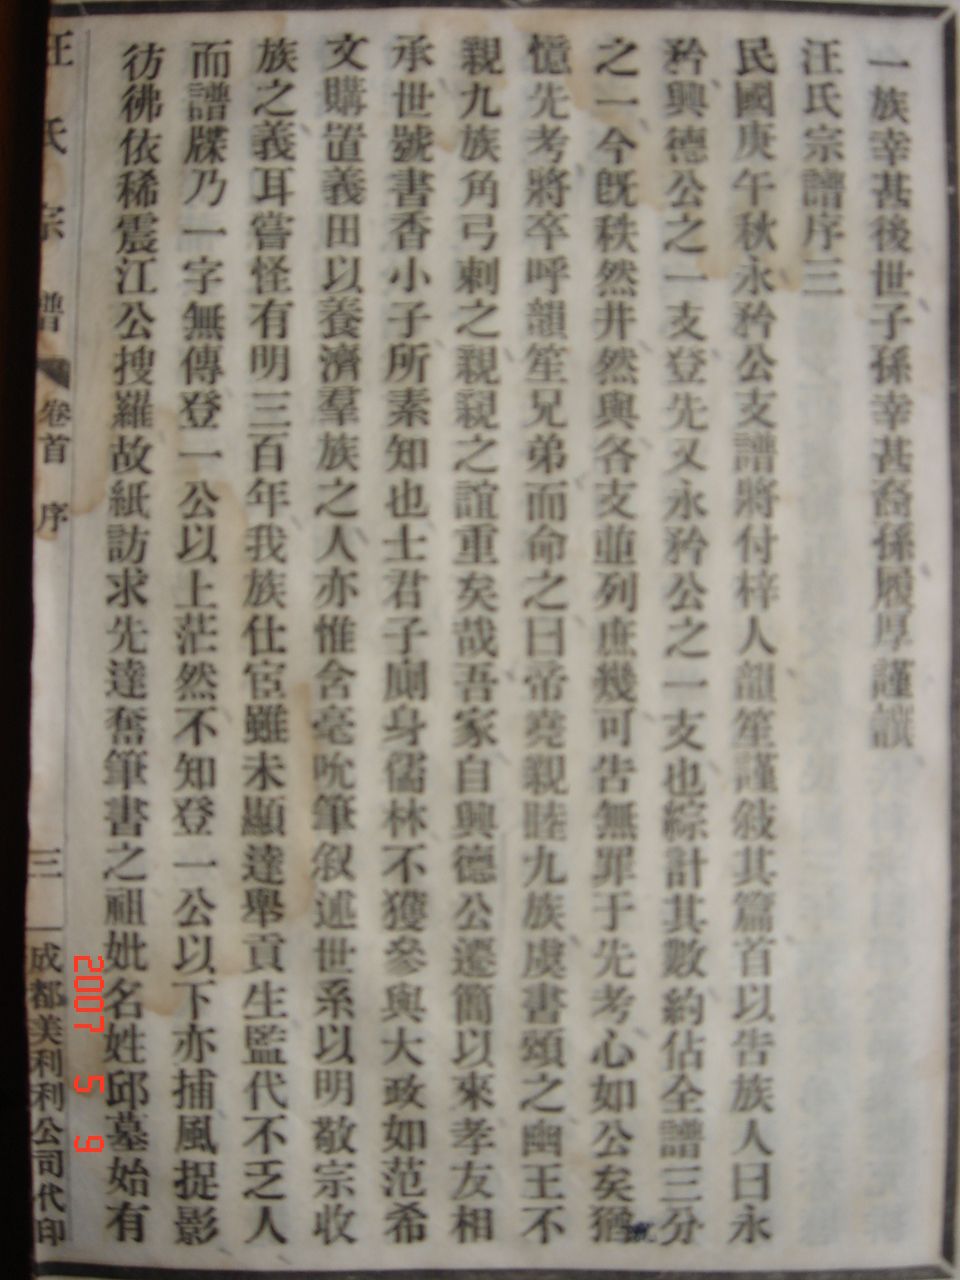 一族幸甚後世子孫幸甚裔孫履厚謹譔
汪氏宗譜序三
民國庚午秋永矜公支譜將付梓人韻笙謹敍其篇首以告族人曰永
矜興德公之一支登先又永矜公之一支也綜計其數約佔全譜三分
之一今旣秩然井然與各支並列庶幾可告無罪于先考心如公矣猶
憶先考將卒呼韻笙兄弟而命之曰帝堯親睦九族虞書頌之幽王不
親九族角弓刺之親親之誼重矣哉吾家自興德公遷簡以來孝友相
承世號書香小子所素知也士君子廁身儒林不獲參與大政如范希
文購置義田以養濟羣族之人亦惟含毫吮筆叙述世系以明敬宗收
族之義耳嘗怪有明三百年我族仕宦雖未顯達舉貢生監代不乏人
而譜牒乃一字無傳登一公以上茫然不知登一公以下亦捕風捉影
彷彿依稀震江公搜羅故紙訪求先達奮筆書之祖妣名姓邱墓始有
汪氏宗譜 卷首 序 三 成都美利利公司代印
2007 5 9